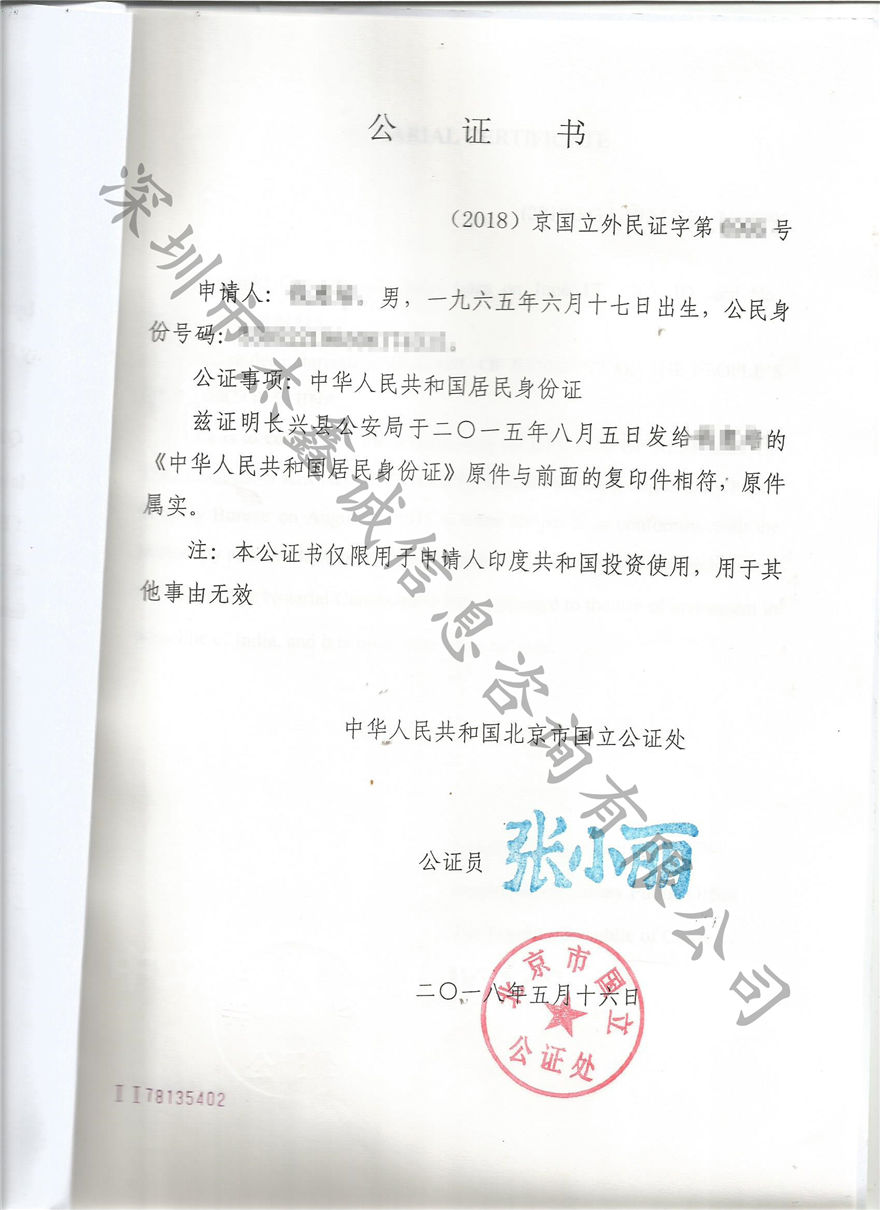 公 证 书
（2018）京国立外民证字第 号
申请人： ，男，一九六五年六月十七日出生，公民身
份号码： 。
公证事项：中华人民共和国居民身份证
兹证明长兴县公安局于二〇一五年八月五日发给 的
《中华人民共和国居民身份证》原件与前面的复印件相符，原件
属实。
注：本公证书仅限用于申请人印度共和国投资使用，用于其
他事由无效
中华人民共和国北京市国立公证处
公证员 张小丽
二〇一八年五月十六日
北京市国立
公证处
ⅡⅠ78135402
深圳市杰鑫诚信息咨询有限公司